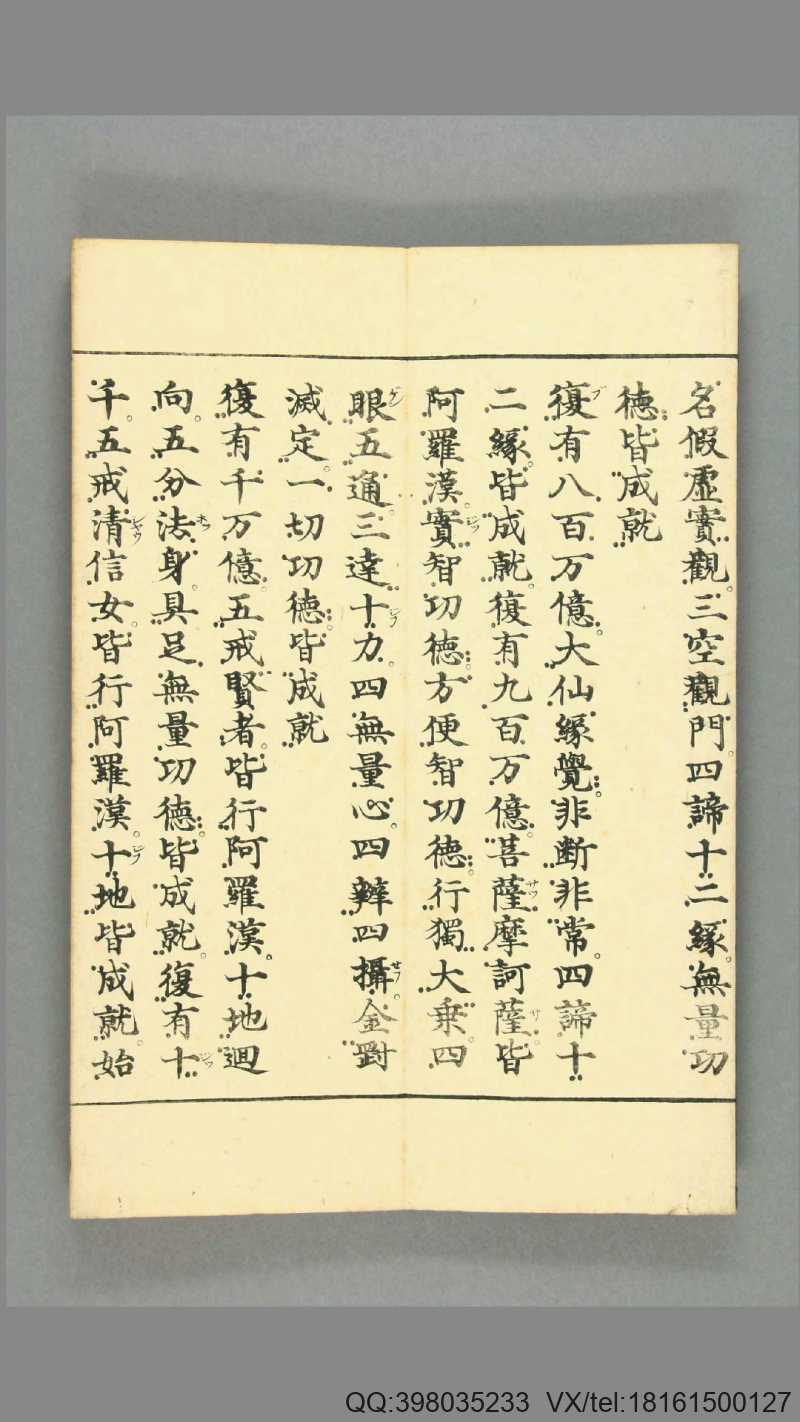 名假虛實觀三空觀門四諦十二緣無量功
德皆成就
復有八百万億大仙緣覺非断非常四諦十
二緣皆成就復有九百万億菩薩摩訶薩皆
阿羅漢實智功德方便智功德行獨大乗四
眼五通三達十力四無量心四辯四攝金剛
滅定一切功德皆成就
復有千万億五戒賢者皆行阿羅漢十地迴
向五分法身具足無量功德皆成就復有十
千五戒清信女皆行阿羅漢十地皆成就始
QQ:398035233 VX/tel:18161500127